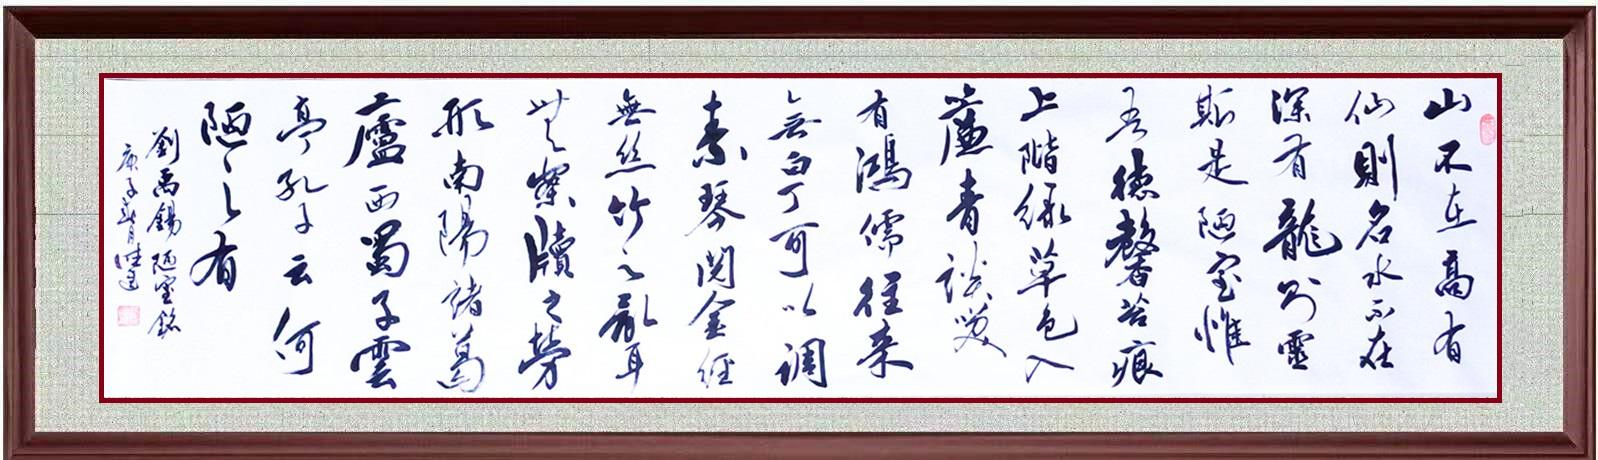 山不在高有
仙則名水不在
深有龍則靈
斯是陋室惟
吾德馨苔痕
上階綠草色入
簾青談笑
有鴻儒往来
无白丁可以调
素琴閱金經
無絲竹之亂耳
無案牘之勞
形南陽諸葛
廬西蜀子雲
亭孔子云何
陋之有
劉禹錫陋室銘
庚子春月